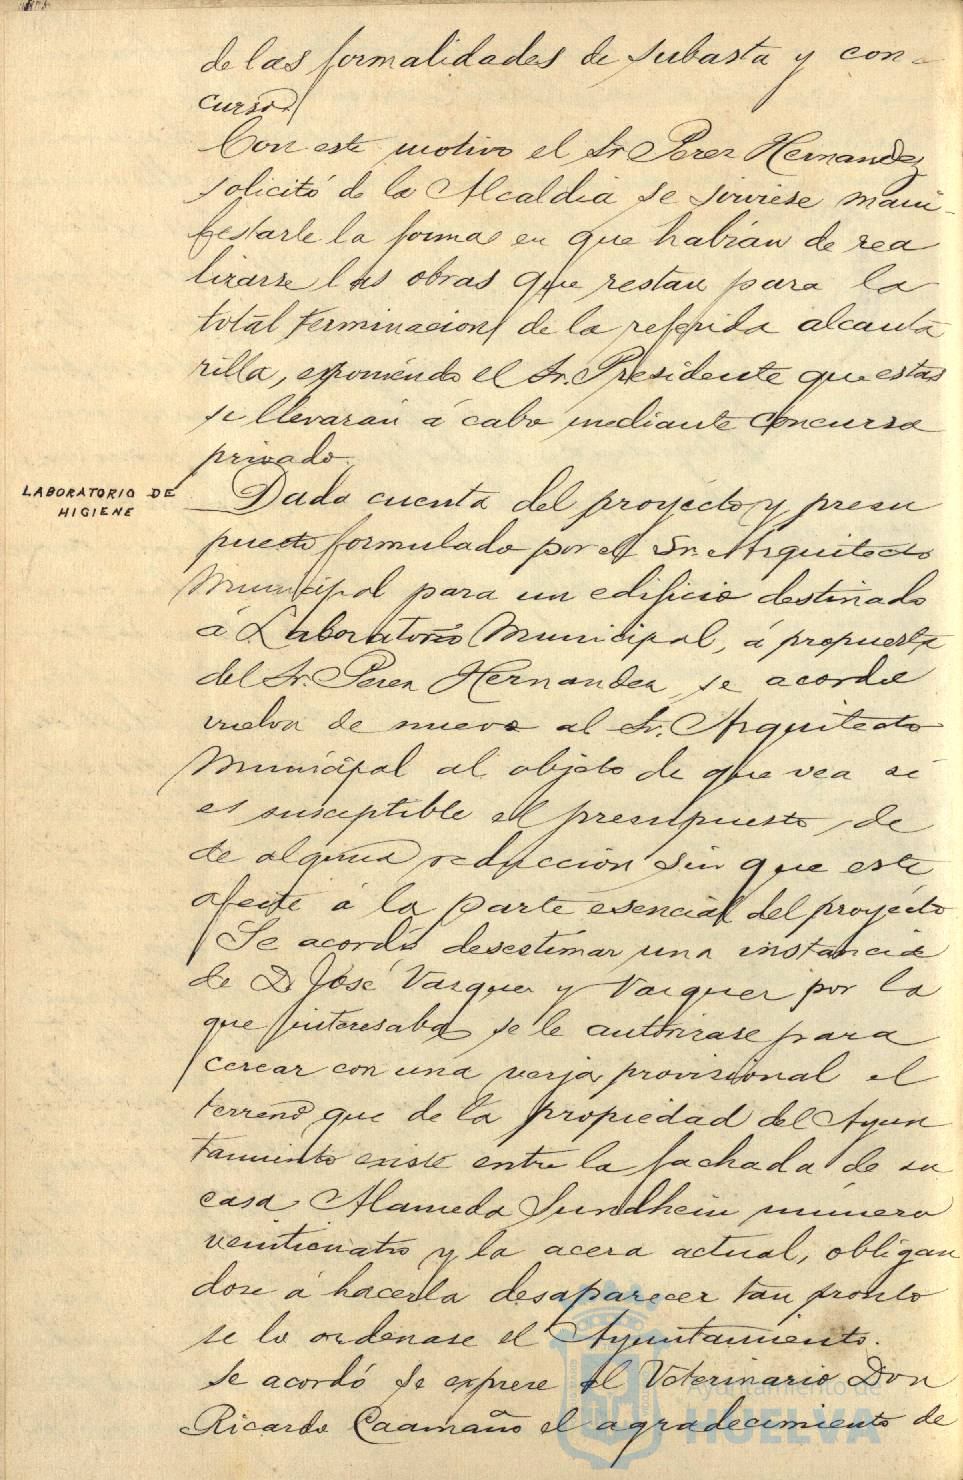 de las formalidades de subasta y con-
curso.
Con este motivo el Sr Perez Hernandez
solicitó de la Alcaldia se sirviese mani-
festarle la forma en que habian de rea
lizarse las obras que restan para la
total terminacion de la referida alcanta
rilla, exponiendo el Sr. Presidente que estas
se llevarán á cabo mediante concurso
privado.
LABORATORIO DE
HIGIENE
Dada cuenta del proyecto y presu
puesto formulado por el Sr. Arquitecto
Municipal para un edificio destinado
á Laboratorio Municipal, á propuesta
del Sr. Perez Hernandez, se acordó
vuelva de nuevo al Sr. Arquitecto
Municipal al objeto de que vea si
es susceptible el presupuesto de
de alguna reducción sin que este
afecte á la parte esencial del proyecto
Se acordó desestimar una instancia
de D. José Vazquez y Vazquez por la
que interesaba se le autorizase para
cercar con una verja provisional el
terreno que de la propiedad del Ayun
tamiento existe entre la fachada de su
casa Alameda Sundhein número
veinticuatro y la acera actual, obligan
dose á hacerla desaparecer tan pronto
se lo ordenase el Ayuntamiento.
Se acordó se exprese al Veterinario Don
Ricardo Caamaño el agradecimiento de
Ayuntamiento de
HUELVA